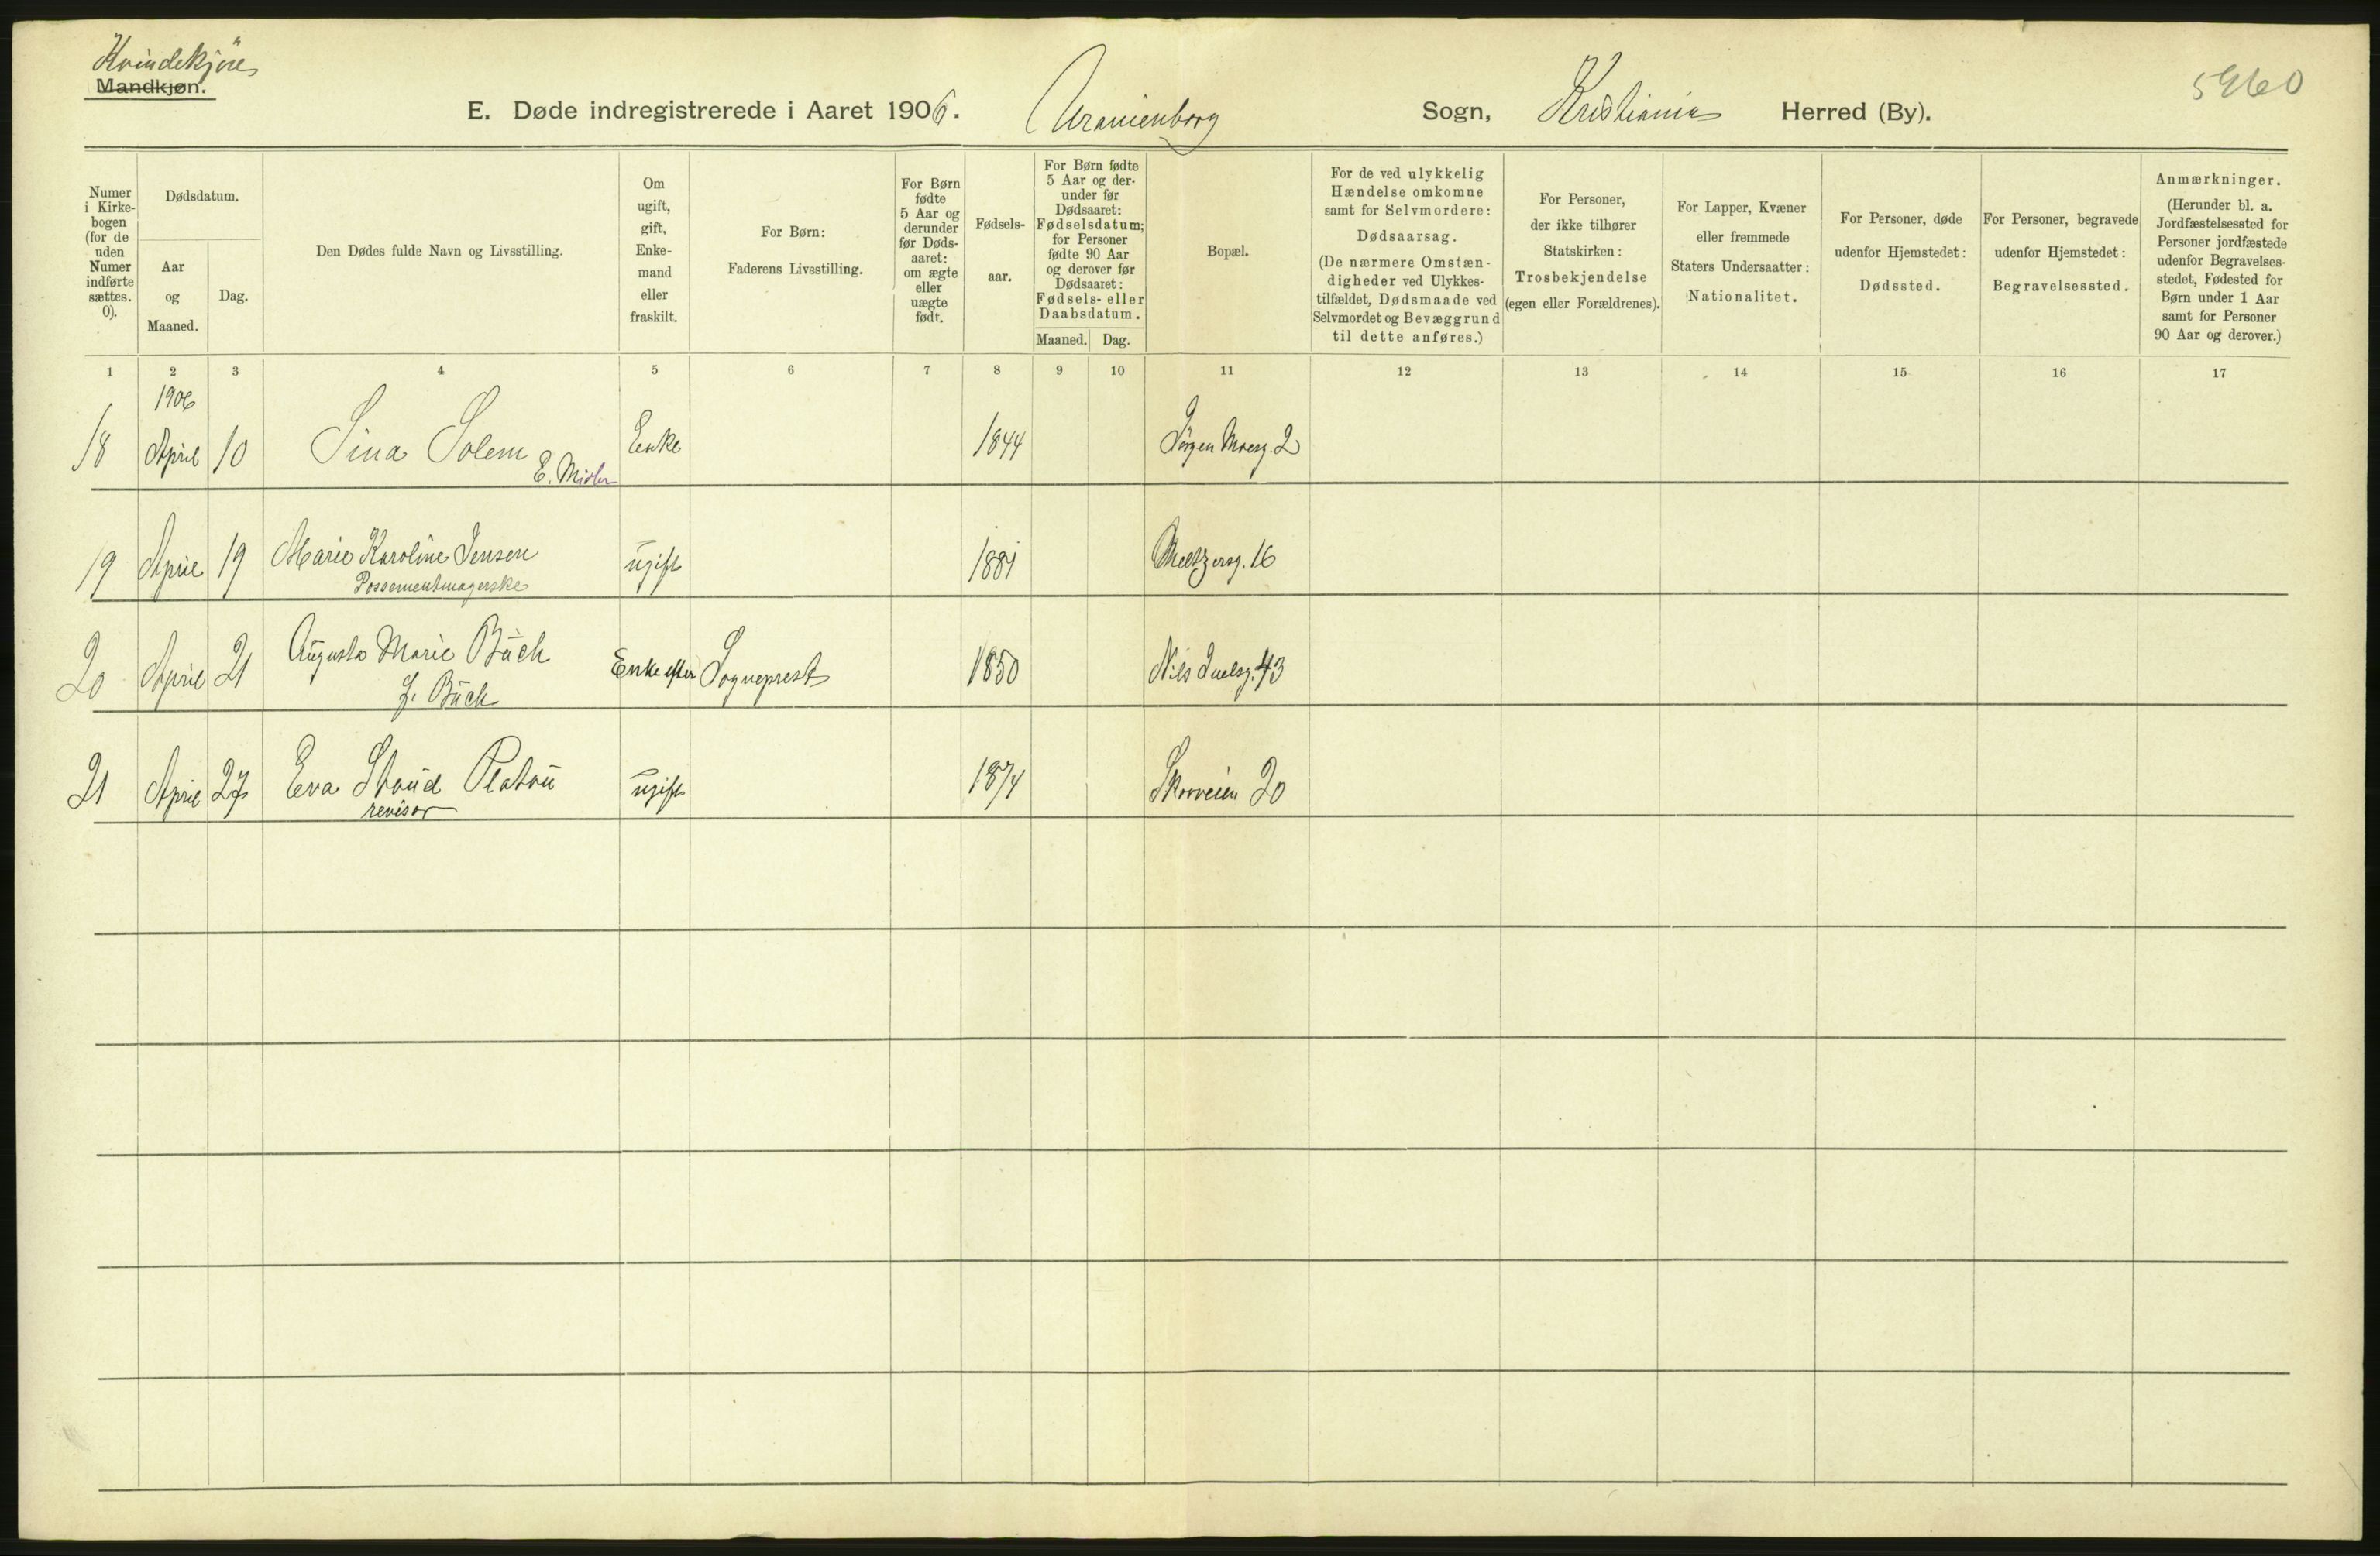 Kvindekjön
Mandkjøn.
5960
E. Døde indregistrerede i Aaret 1906. Uranienborg Sogn, Kristiania Herred (By).
Numer i Kirke-bogen (for de uden Numer indførte sættes. 0).
Dødsdatum.
Aar og Maaned.
Dag.
Den Dødes fulde Navn og Livsstilling.
Om ugift, gift, Enke-mand eller fraskilt.
For Børn: Faderens Livsstilling.
For Børn fødte 5 Aar og derunder før Døds-aaret: om ægte eller uægte født.
Fødsels-aar.
For Børn fødte 5 Aar og der-under før Dødsaaret: Fødselsdatum; for Personer fødte 90 Aar og derover før Dødsaaret: Fødsels- eller Daabsdatum.
Maaned. Dag.
Bopæl.
For de ved ulykkelig Hændelse omkomne samt for Selvmordere: Dødsaarsag. (De nærmere Omstæn-digheder ved Ulykkes-tilfældet, Dødsmaade ved Selvmordet og Bevæggrund til dette anføres.)
For Personer, der ikke tilhører Statskirken: Trosbekjendelse (egen eller Forældrenes).
For Lapper, Kvæner eller fremmede Staters Undersaatter: Nationalitet.
For Personer, døde udenfor Hjemstedet: Dødssted.
For Personer, begravede udenfor Hjemstedet: Begravelsessted.
Anmærkninger. (Herunder bl. a. Jordfæstelsessted for Personer jordfæstede udenfor Begravelses-stedet, Fødested for Børn under 1 Aar samt for Personer 90 Aar og derover.)
1 2 3 4 5 6 7 8 9 10 11 12 13 14 15 16 17
1906
18 April 10 Sina Solem Enke 1844 Jörgen Moesg. 2
E.
19 April 19 Marie Karoline Jensen ugift 1881 Meltzersg. 16
Possementmagerske
20 April 21 Augusta Marie Buch Enke efter Sogneprest 1850 Nils Juelsg. 43
f. Buch
21 April 27 Eva Stoud Platou ugift 1874 Skovveien 20
revisor